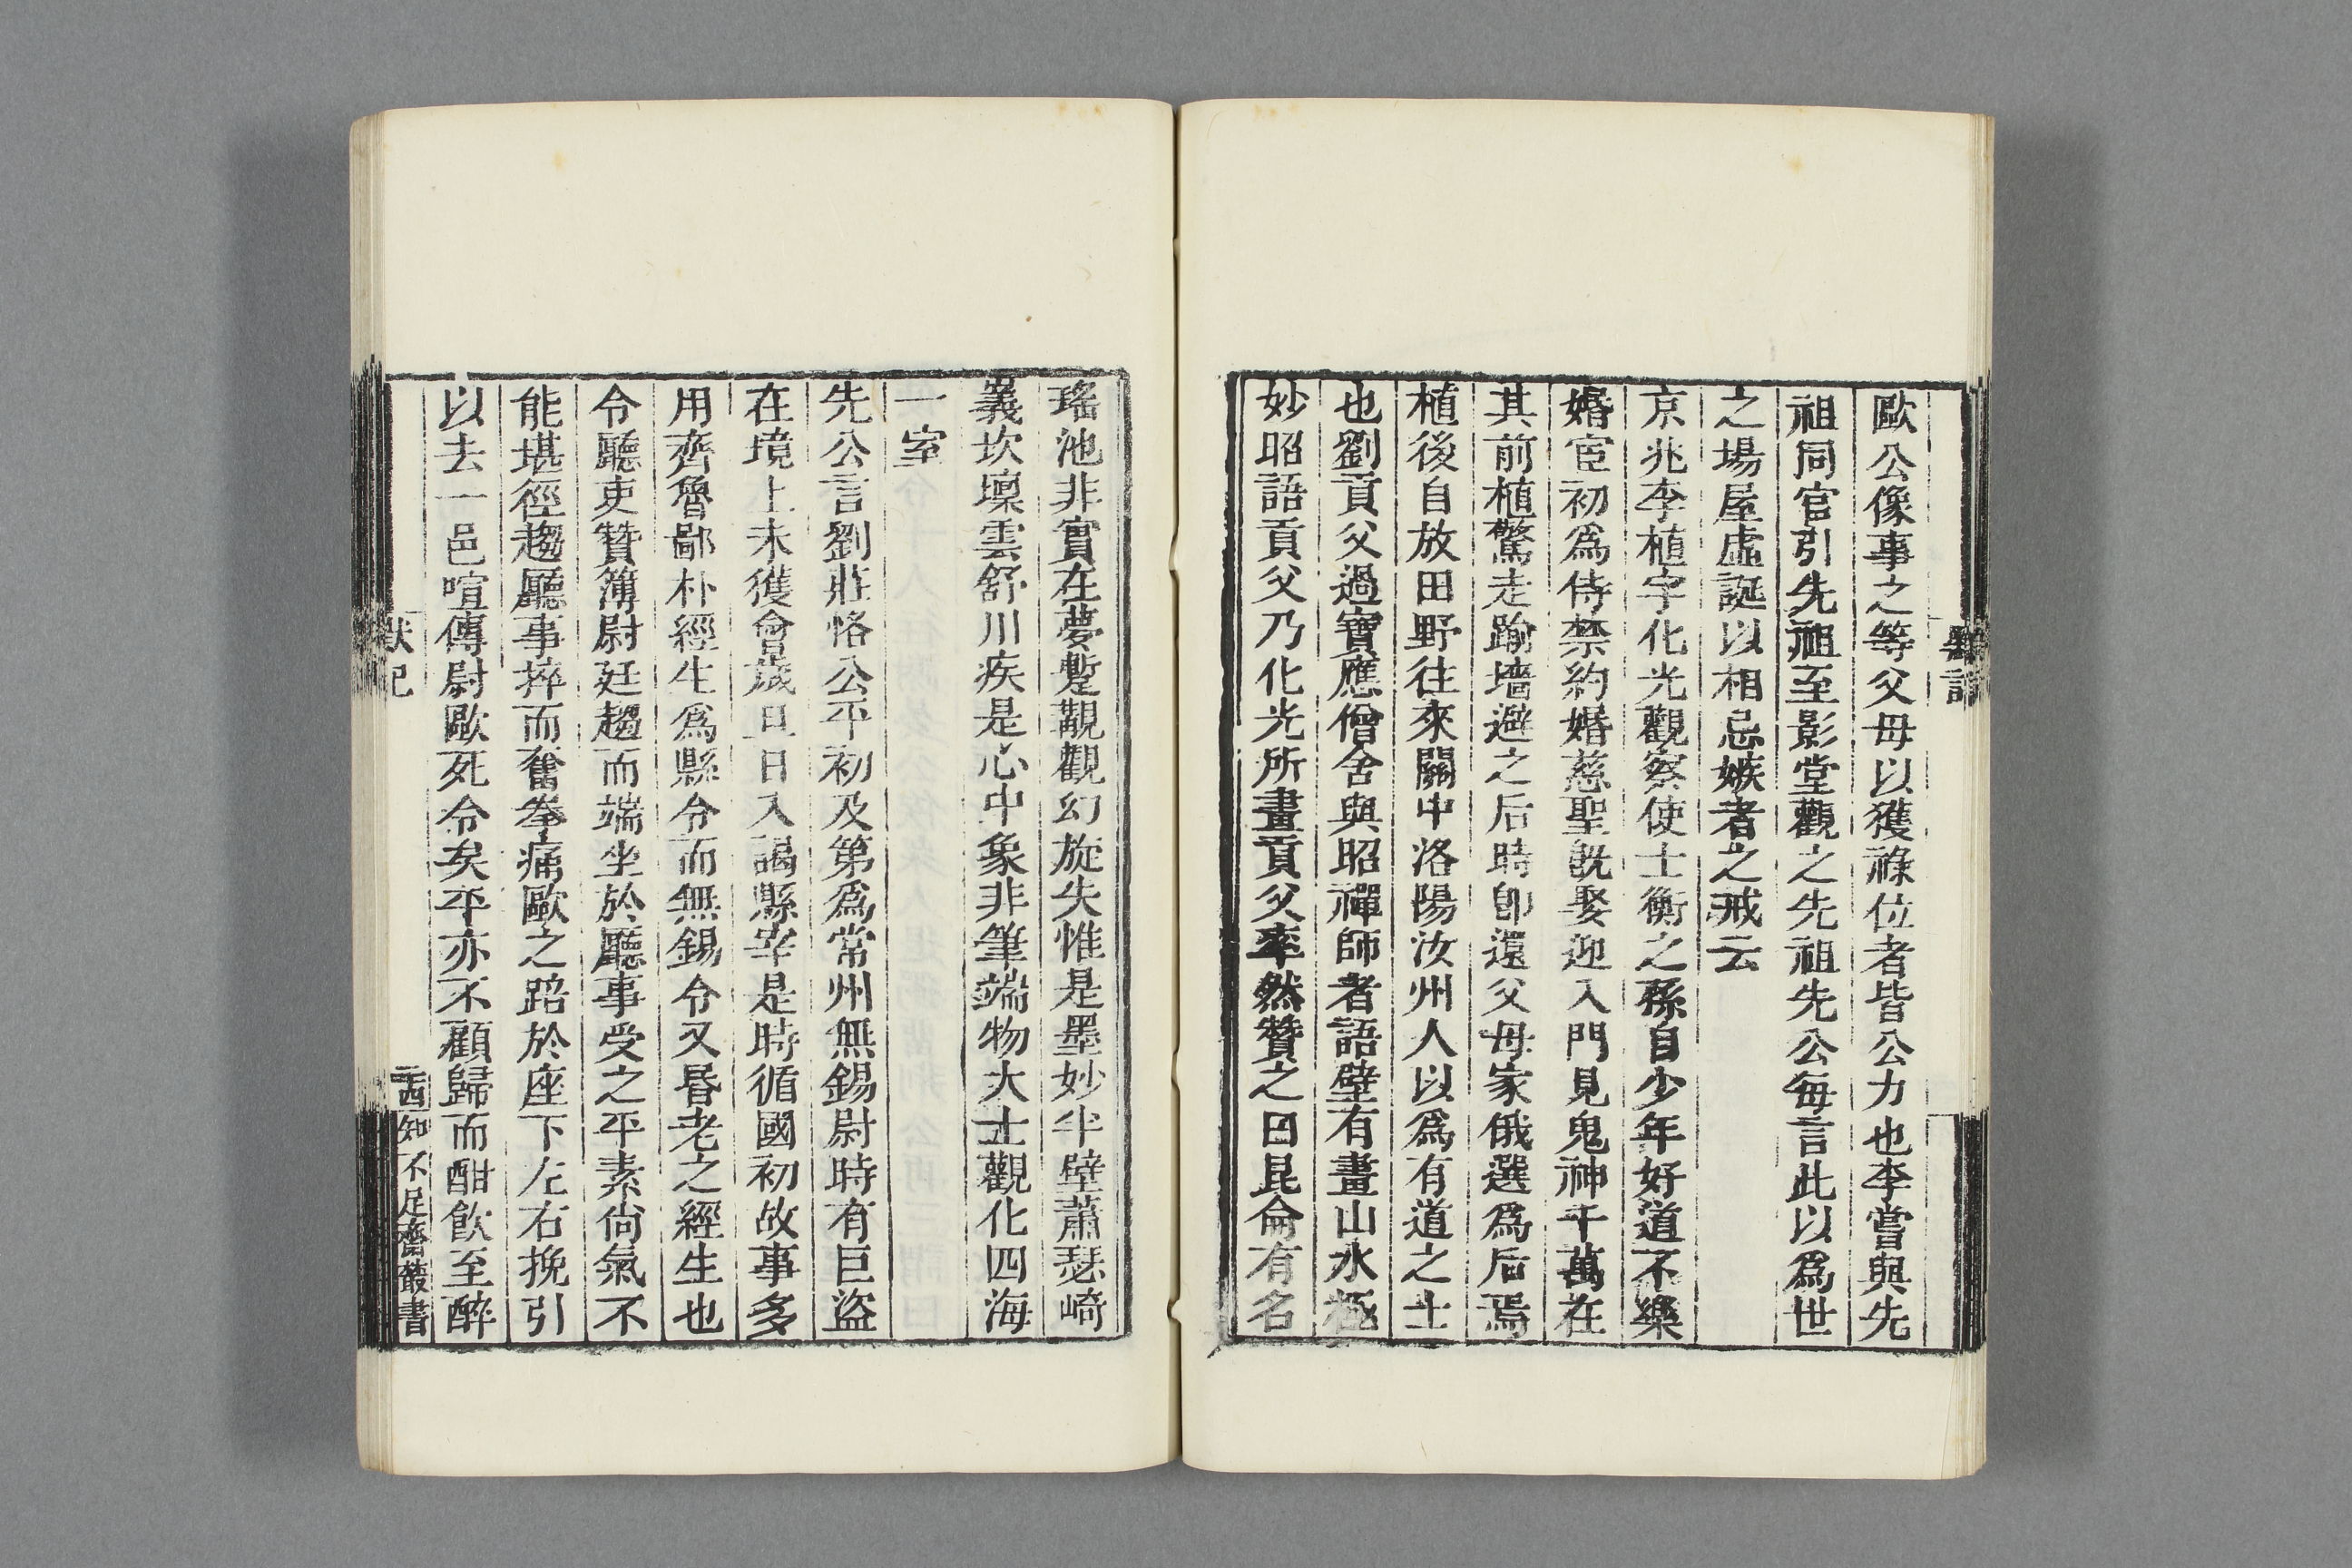 歐公像事之等父母以獲祿位者皆公力也李嘗與先
祖同官引先祖至影堂觀之先祖先公每言此以爲世
之場屋虛誕以相忌嫉者之戒云
京兆李植字化光觀察使士衡之孫自少年好道不樂
婚宦初爲侍禁約婚慈聖旣娶迎入門見鬼神千萬在
其前植驚走踰墻避之后時卽還父母家俄選爲后焉
植後自放田野往來關中洛陽汝州人以爲有道之士
也劉貢父過寶應僧舍與昭禪師者語壁有畫山水極
妙昭語貢父乃化光所畫貢父率然贊之曰昆侖有名
瑤池非實在夢蹔覩觀幻旋失惟是墨妙半壁蕭瑟崎
嶬坎壈雲舒川疾是心中象非筆端物大士觀化四海
一室
先公言劉莊恪公平初及第爲常州無錫尉時有巨盜
在境上未獲會歲旦日入謁縣宰是時循國初故事多
用齊魯鄙朴經生爲縣令而無錫令又昏老之經生也
令廳吏贊簿尉廷趨而端坐於廳事受之平素尙氣不
能堪徑趨廳事捽而奮拳痛歐之踣於座下左右挽引
以去一邑喧傳尉歐死令矣平亦不顧歸而酣飮至醉
知不足齋叢書